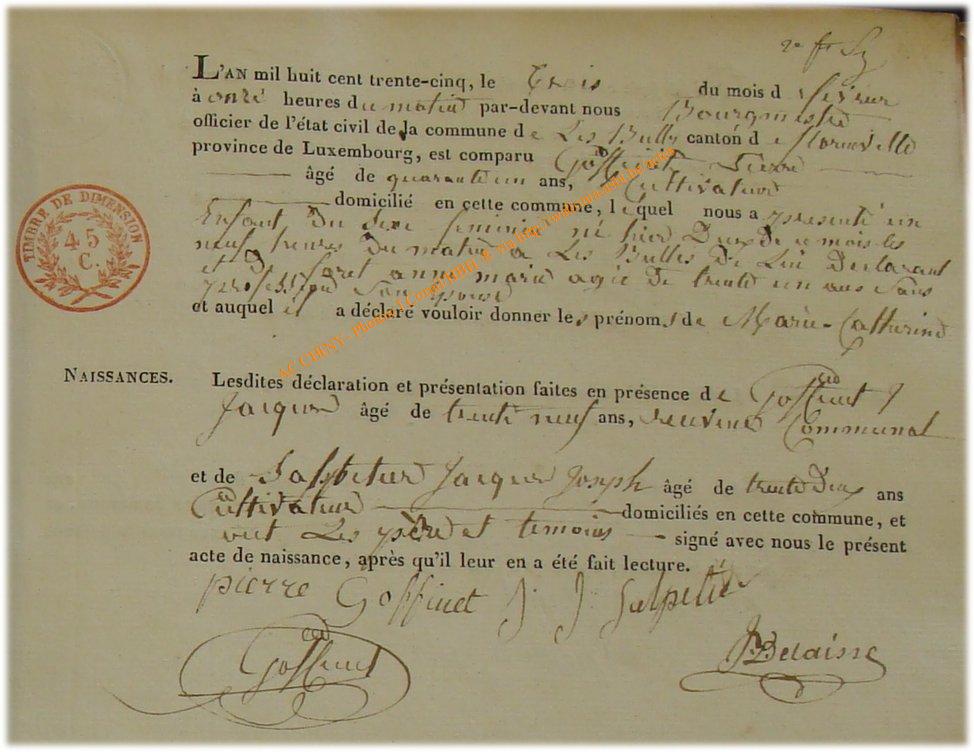 L'AN mil huit cent trente-cinq, le trois du mois de février
à onze heures du matin par-devant nous Bourgmestre
officier de l'état civil de la commune de Les Bulles canton de florenville
province de Luxembourg, est comparu Goffinet Pierre
âgé de quarante un ans, Cultivateur
domicilié en cette commune, lequel nous a présenté un
Enfant du sexe feminin né hier Deux de ce mois les
neuf heures du matin à Les Bulles de Lui Declarant
et d anne marie agée de trente un ans Sans
profession Son Epouse
et auquel il a déclaré vouloir donner les prénoms de Marie-Catherine
NAISSANCES.
Lesdites déclaration et présentation faites en présence de Goffinet
Jacques âgé de trente neuf ans, Receveur Communal
et de Salpeteur Jacques Joseph âgé de trente Deux ans
Cultivateur domiciliés en cette commune, et
ont Les père et temoins signé avec nous le présent
acte de naissance, après qu'il leur en a été fait lecture.
pierre Goffinet J J Salpetier
Goffinet
Delaisse
TIMBRE DE DIMENSION
45
C.
AC CHINY - Photos J.